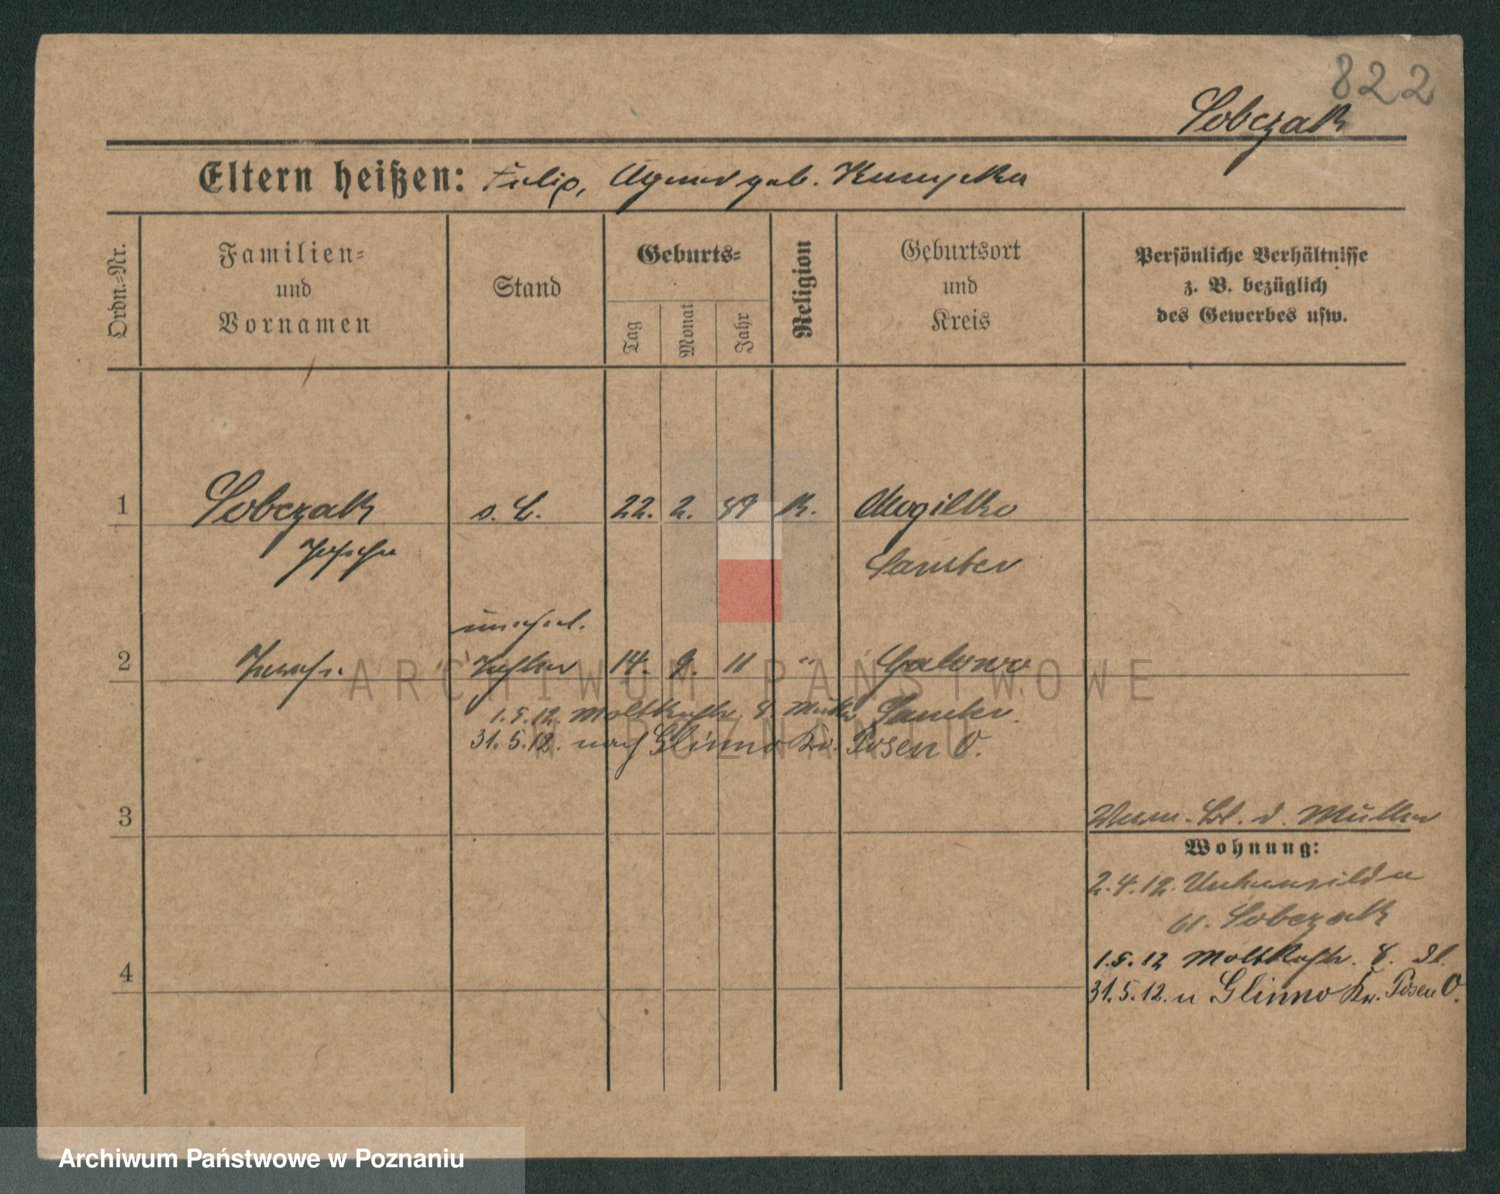 822
Sobczak
Eltern heißen: Filip, geb.
Ordn.-Nr.
Familien-
und
Vornamen
Stand
Geburts-
Tag
Monat
Jahr
Religion
Geburtsort
und
Kreis
Persönliche Verhältnisse
z. B. bezüglich
des Gewerbes usw.
1 Sobczak s. L. 22. 2. 89 K. Mogilko
Samter
unehel.
2 Tochter 14. 9. 11 " Galowo
1.5.12. Moltkestr. 8 Samter.
31.5.12. nach Glinno Kr. Posen O.
ARCHIWUM PAŃSTWOWE
W POZNANIU
3
d. Müller
Wohnung:
2.4.12.
bei Sobczak
4
1.5.12 Moltkestr. 8.
31.5.12. n Glinno Kr. Posen O.
Archiwum Państwowe w Poznaniu